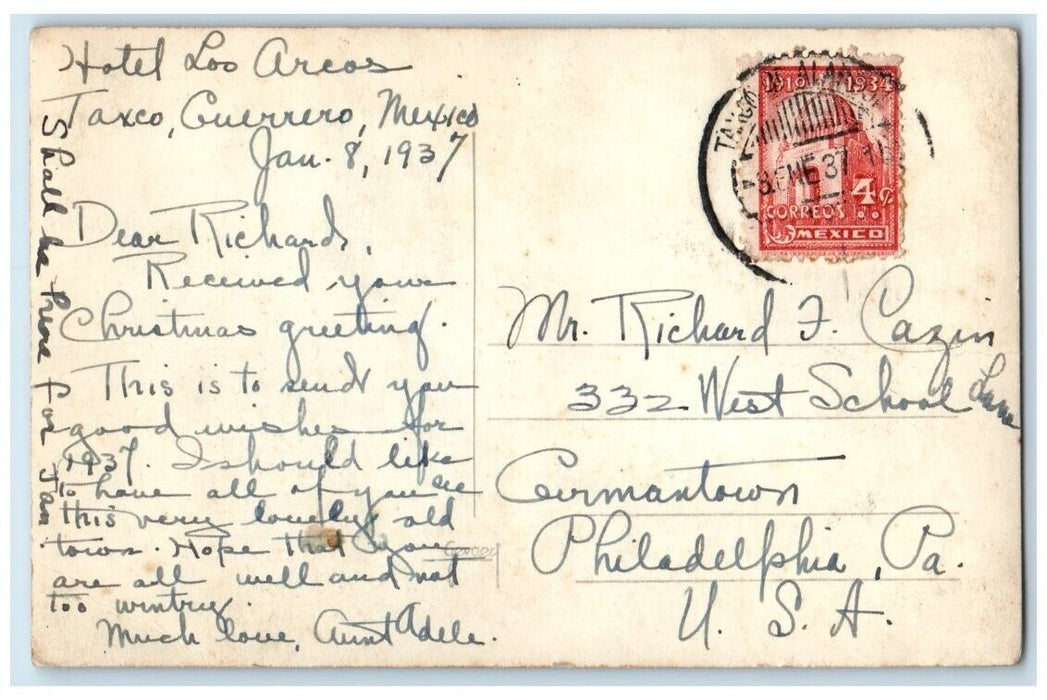 Hotel Los Arcos
Taxco, Guerrero, Mexico
Jan. 8, 1937
Dear Richard,
Received your
Christmas greeting.
This is to send you
good wishes for
1937. I should like
to have all of you see
this very lovely old
town. Hope that you
are all well and not
too wintry.
Much love, Aunt Adele.
Shall be here for Jan.
1910 1934
8. ENE 37
4¢
CORREOS
MEXICO
Mr. Richard F. Cazin
332 West School Lane
Germantown
Philadelphia, Pa.
U. S. A.